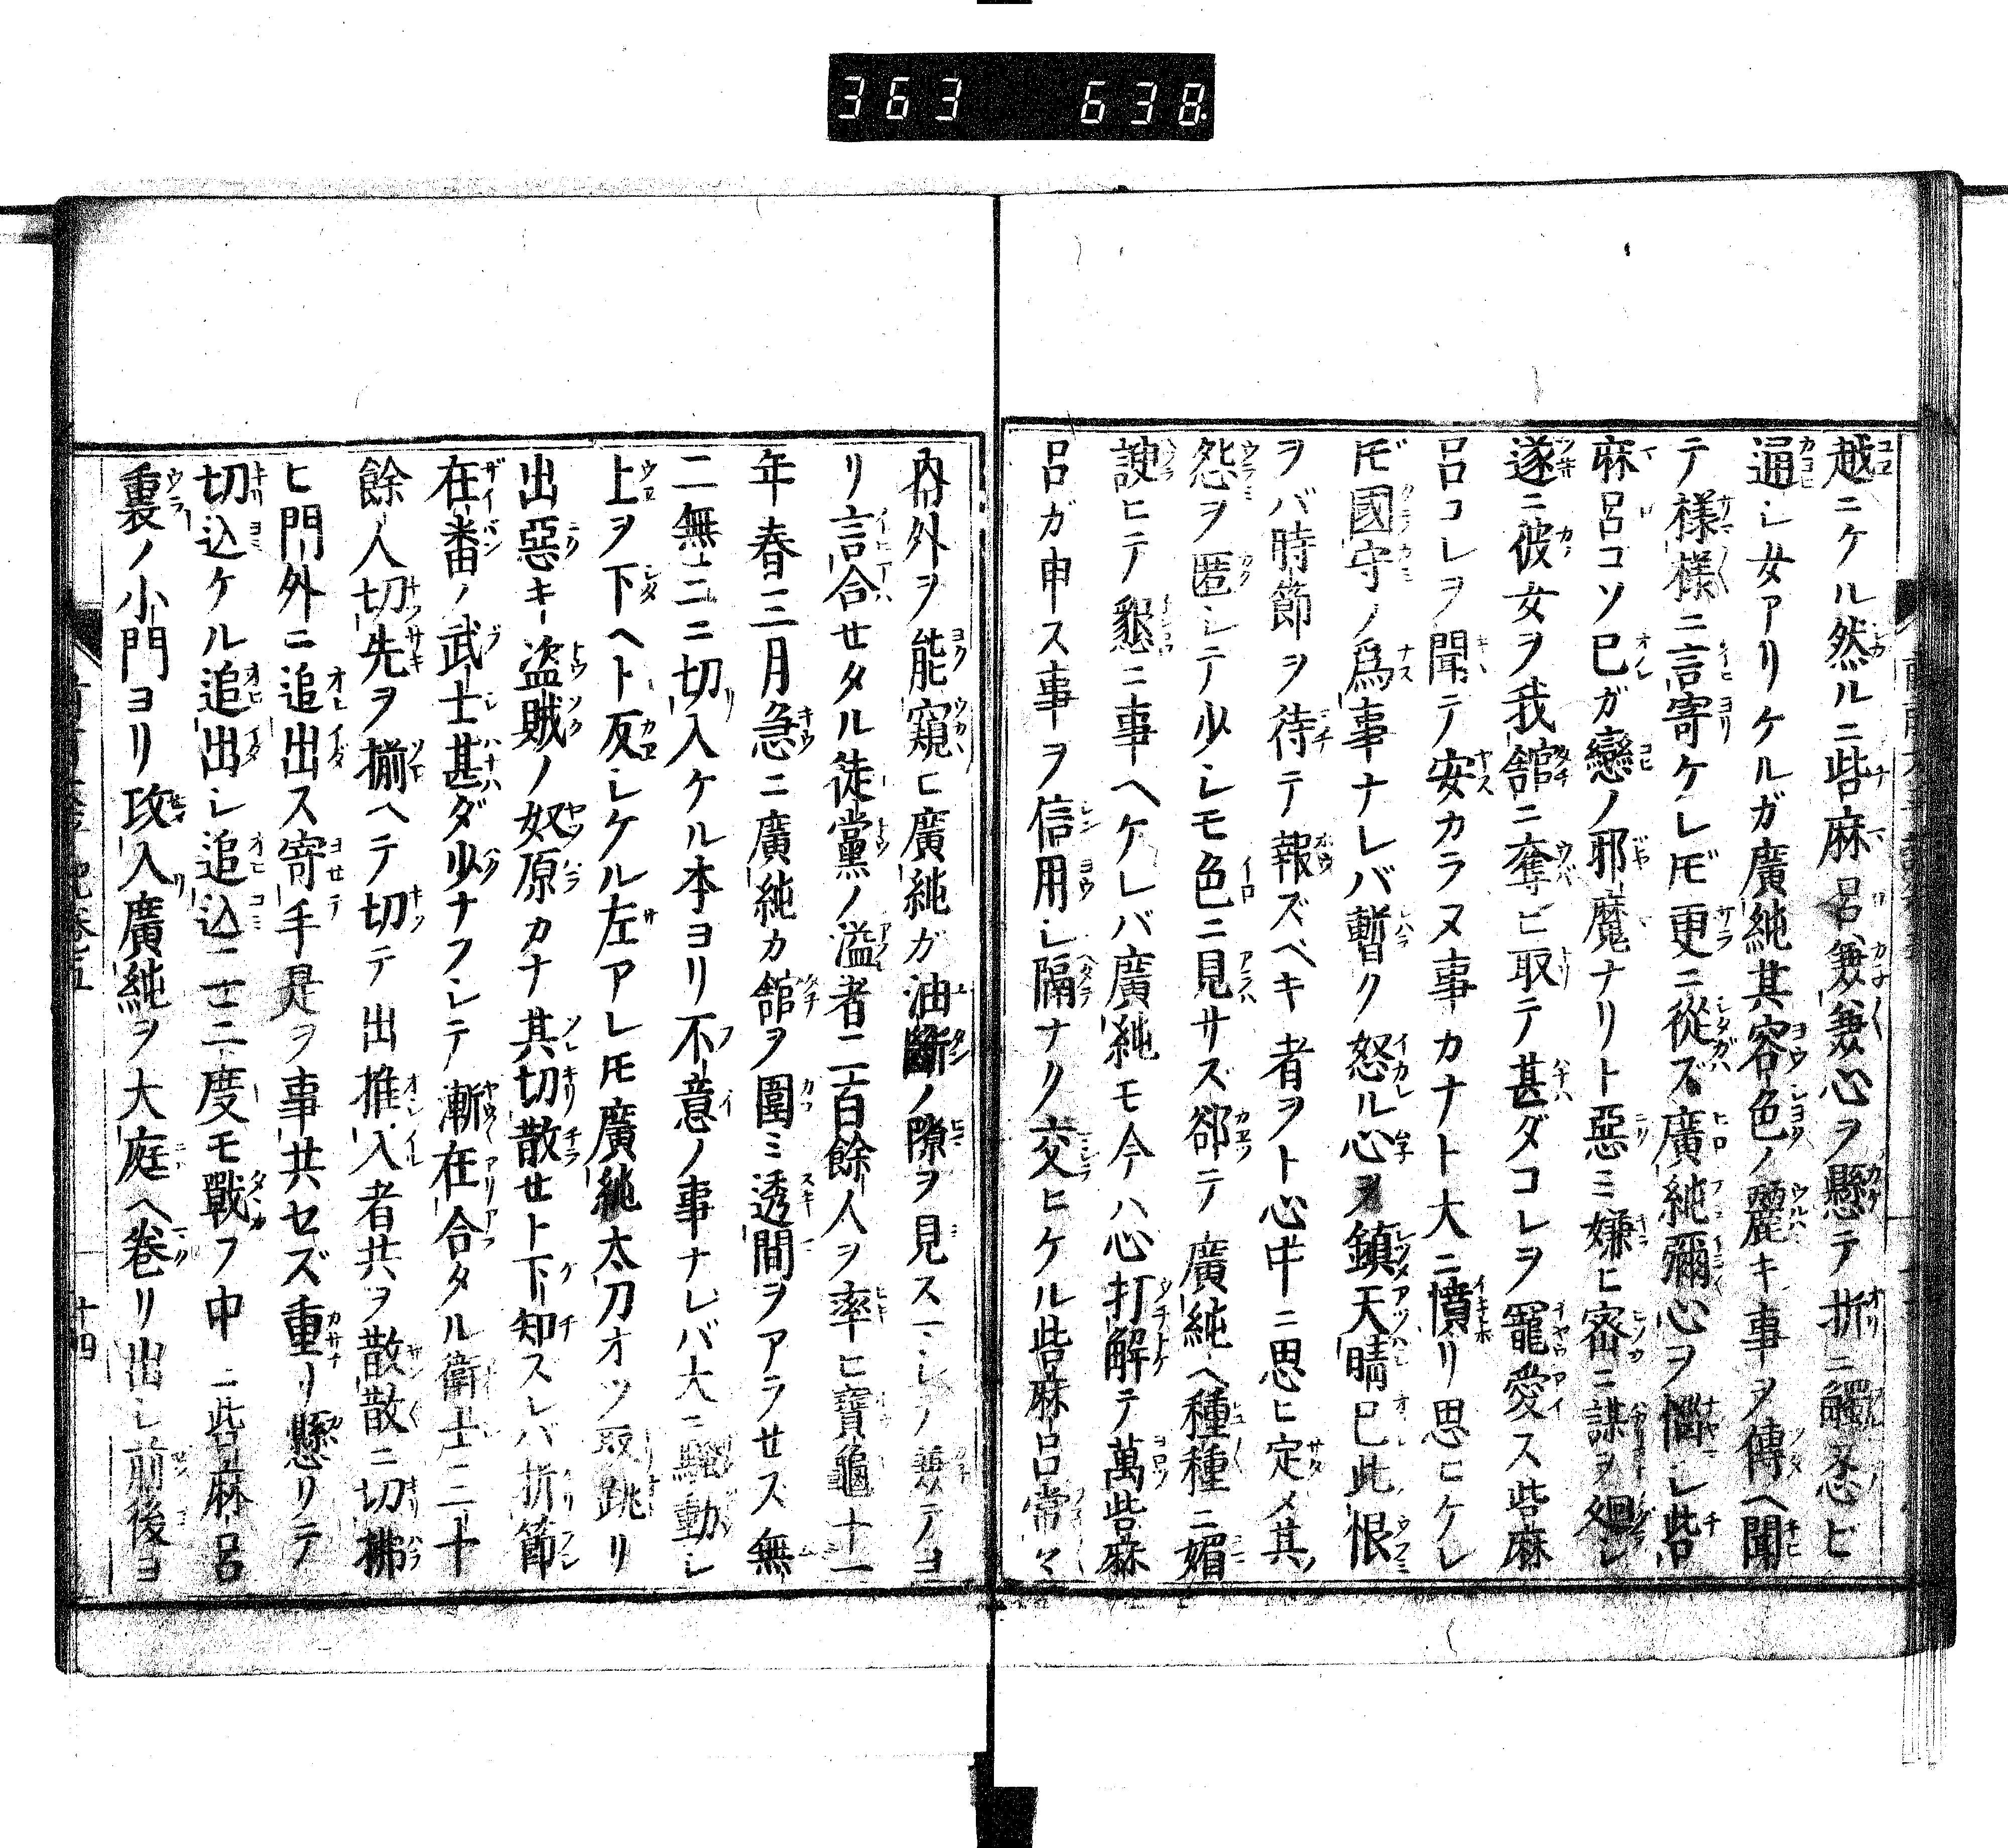 363 638
越ニケル然ルニ呰麻呂兼兼心ヲ懸テ折ニ觸忍ビ
通シ女アリケルガ廣純其容色ノ麗キ事ヲ傳ヘ聞
テ樣樣ニ言寄ケレ𪜈更ニ從ズ廣純彌心ヲ惱シ呰
麻呂コソ已ガ戀ノ邪魔ナリト惡ミ嫌ヒ密ニ謀ヲ廻シ
遂ニ彼女ヲ我舘ニ奪ヒ取テ甚ダコレヲ寵愛ス呰麻
呂コレヲ聞テ安カラヌ事カナト大ニ憤リ思ヒケレ
𪜈國守ノ爲事ナレバ暫ク怒ル心ヲ鎭天晴已此恨
ヲバ時節ヲ待テ報ズベキ者ヲト心中ニ思ヒ定メ其
怨ヲ匿シテ少シモ色ニ見サズ郤テ廣純ヘ種種ニ媚
諛ヒテ懇ニ事ヘケレバ廣純モ今ハ心打解テ萬呰麻
呂ガ申ス事ヲ信用シ隔ナク交ヒケル呰麻呂常々
内外ヲ能窺ヒ廣純ガ油斷ノ隙ヲ見スマシノ兼テヨ
リ言合セタル徒黨ノ溢者二百餘人ヲ率ヒ寶龜十一
年春三月急ニ廣純カ舘ヲ圍ミ透間ヲアラセス無
二無三ニ切入ケル本ヨリ不意ノ事ナレバ大ニ騷動シ
上ヲ下ヘト反シケル左アレ𪜈廣純太刀オツ取跳リ
出惡キ盜賊ノ奴原カナ其切散セト下知スレバ折節
在番ノ武士甚ダ少ナフシテ漸在合タル衛士二十
餘人切先ヲ揃ヘテ切テ出推入者共ヲ散散ニ切拂
ヒ門外ニ追出ス寄手是ヲ事共セズ重ノ懸リテ
切込ケル追出シ追込二三度モ戰フ中ニ呰麻呂
裏ノ小門ヨリ攻入廣純ヲ大庭ヘ卷リ出シ前後ヨ
十四